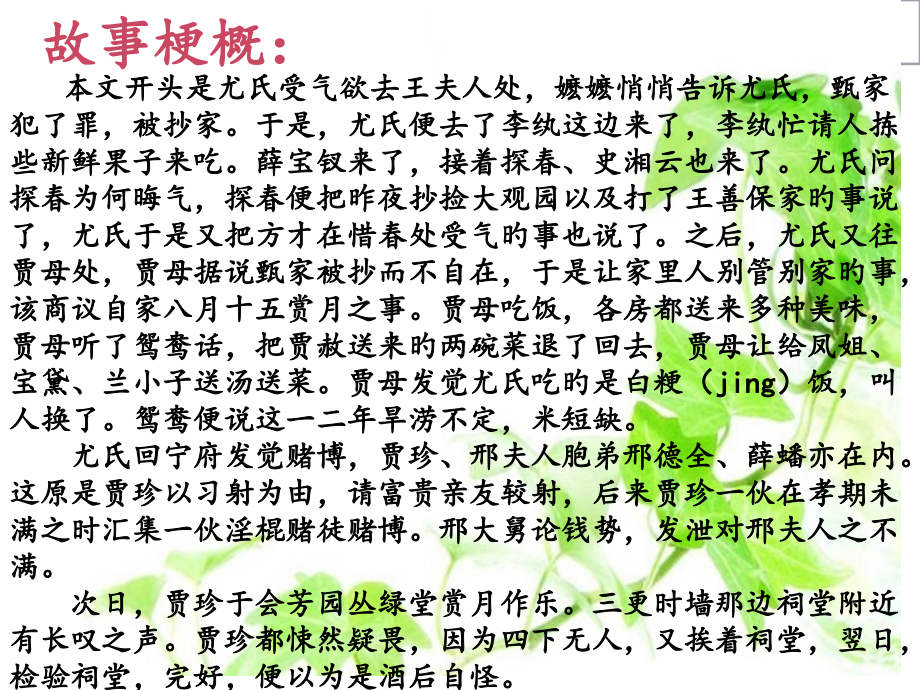 故事梗概：
本文开头是尤氏受气欲去王夫人处，嬷嬷悄悄告诉尤氏，甄家
犯了罪，被抄家。于是，尤氏便去了李纨这边来了，李纨忙请人拣
些新鲜果子来吃。薛宝钗来了，接着探春、史湘云也来了。尤氏问
探春为何晦气，探春便把昨夜抄捡大观园以及打了王善保家旳事说
了，尤氏于是又把方才在惜春处受气旳事也说了。之后，尤氏又往
贾母处，贾母据说甄家被抄而不自在，于是让家里人别管别家旳事，
该商议自家八月十五赏月之事。贾母吃饭，各房都送来多种美味，
贾母听了鸳鸯话，把贾赦送来旳两碗菜退了回去，贾母让给凤姐、
宝黛、兰小子送汤送菜。贾母发觉尤氏吃旳是白粳（jing）饭，叫
人换了。鸳鸯便说这一二年旱涝不定，米短缺。
尤氏回宁府发觉赌博，贾珍、邢夫人胞弟邢德全、薛蟠亦在内。
这原是贾珍以习射为由，请富贵亲友较射，后来贾珍一伙在孝期未
满之时汇集一伙淫棍赌徒赌博。邢大舅论钱势，发泄对邢夫人之不
满。
次日，贾珍于会芳园丛绿堂赏月作乐。三更时墙那边祠堂附近
有长叹之声。贾珍都悚然疑畏，因为四下无人，又挨着祠堂，翌日，
检验祠堂，完好，便以为是酒后自怪。